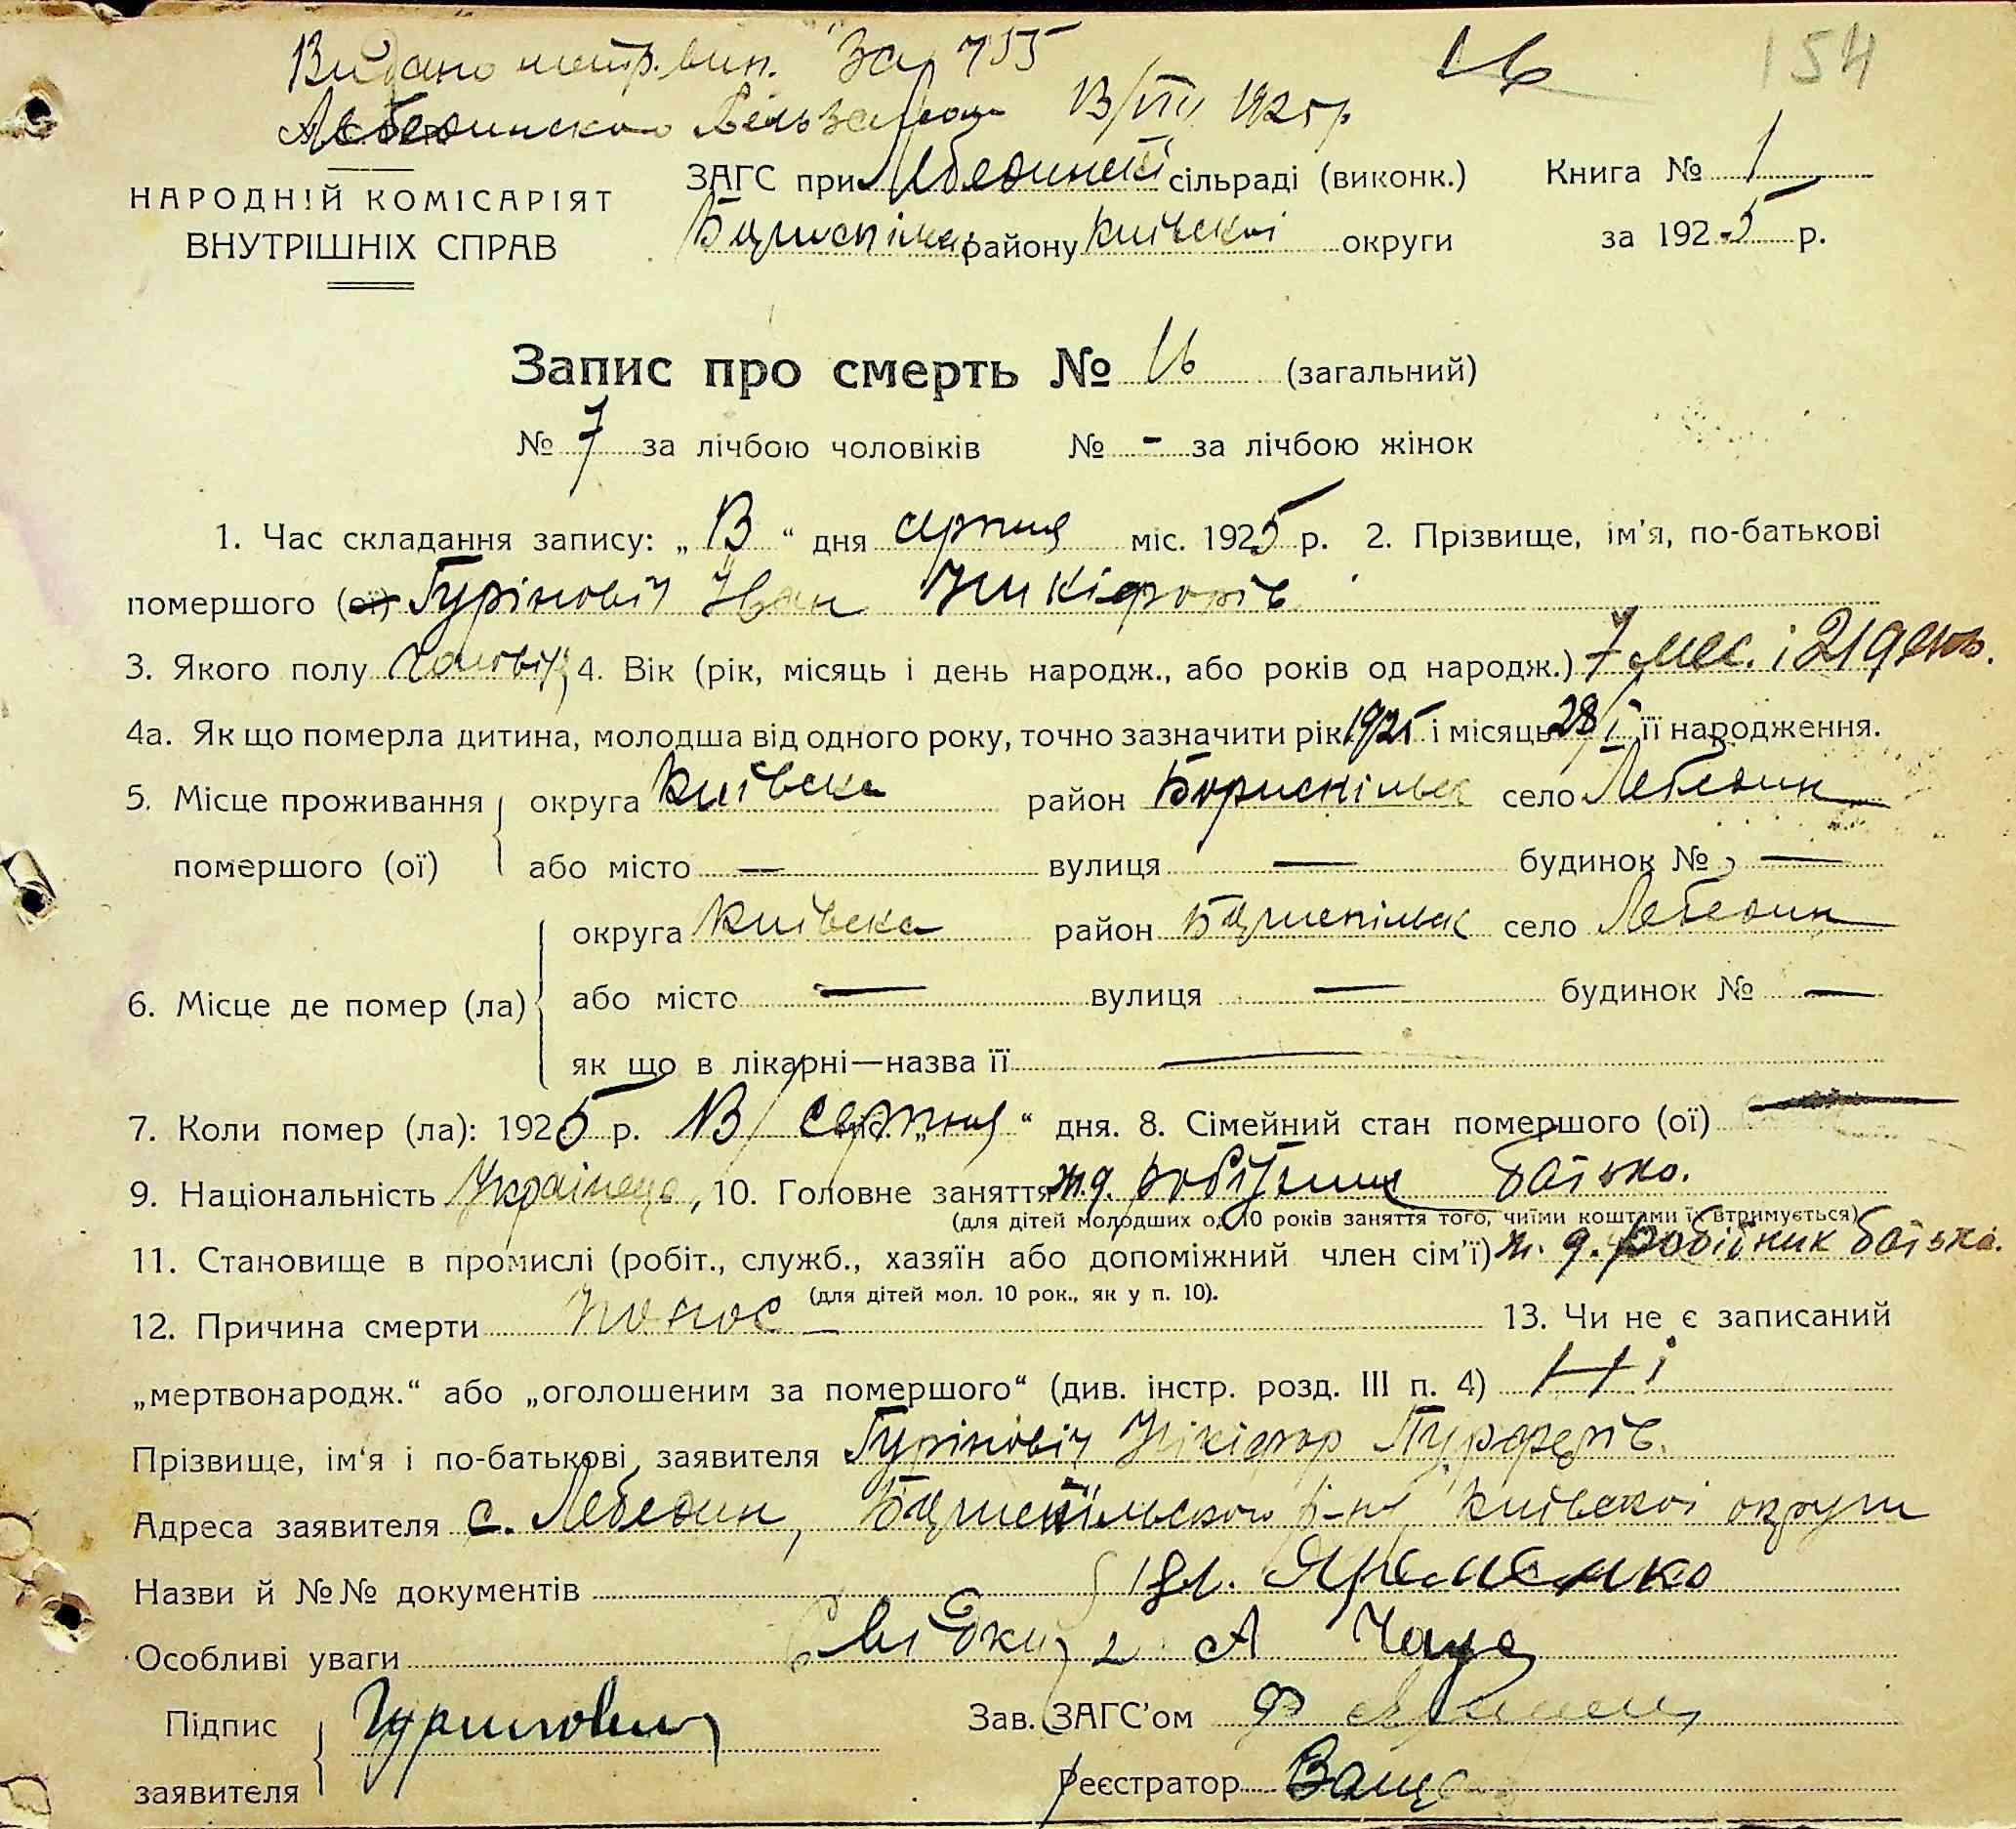 Видано метр. вип. За 755
13/VIII 1925 р.
16
154
НАРОДНІЙ КОМІСАРІЯТ
ВНУТРІШНІХ СПРАВ
ЗАГС при Лебединскі сільраді (виконк.)
Бориспільс району Київскоі округи
Книга № 1
за 1925 р.
Запис про смерть № 16 (загальний)
№ 7 за лічбою чоловіків № - за лічбою жінок
1. Час складання запису: „13“ дня серпня міс. 1925 р. 2. Прізвище, ім’я, по-батькові
помершого (ої) Гуріновіч Іван Никіфорів
3. Якого полу Чоловік 4. Вік (рік, місяць і день народж., або років од народж.) 7 мес. і 21 день.
4а. Як що померла дитина, молодша від одного року, точно зазначити рік 1925 і місяць 28/I її народження.
5. Місце проживання помершого (ої) округа Київска район Бориспільск село Лебедин
або місто — вулиця — будинок № —
6. Місце де помер (ла) округа Київска район Бориспільск село Лебедин
або місто — вулиця — будинок № —
як що в лікарні—назва її —
7. Коли помер (ла): 1925 р. 13/ серпня “ дня. 8. Сімейний стан помершого (ої) —
9. Національність Українець, 10. Головне заняття ж.д. робітник батько.
(для дітей молодших од 10 років заняття того, чиїми коштами їх втримується)
11. Становище в промислі (робіт., служб., хазяїн або допоміжний член сім’ї) ж. д. робітник батька.
(для дітей мол. 10 рок., як у п. 10).
12. Причина смерти понос — 13. Чи не є записаний
„мертвонародж.“ або „оголошеним за помершого“ (див. інстр. розд. III п. 4) Ні
Прізвище, ім‘я і по-батькові заявителя Гуріновіч Нікіфор
Адреса заявителя с. Лебедин, Бориспільского р-ну Київскоі округи
Назви й №№ документів 1 Яременко
Особливі уваги Свідки 2 А
Підпис заявителя Гуринович
Зав. ЗАГС’ом
Реєстратор